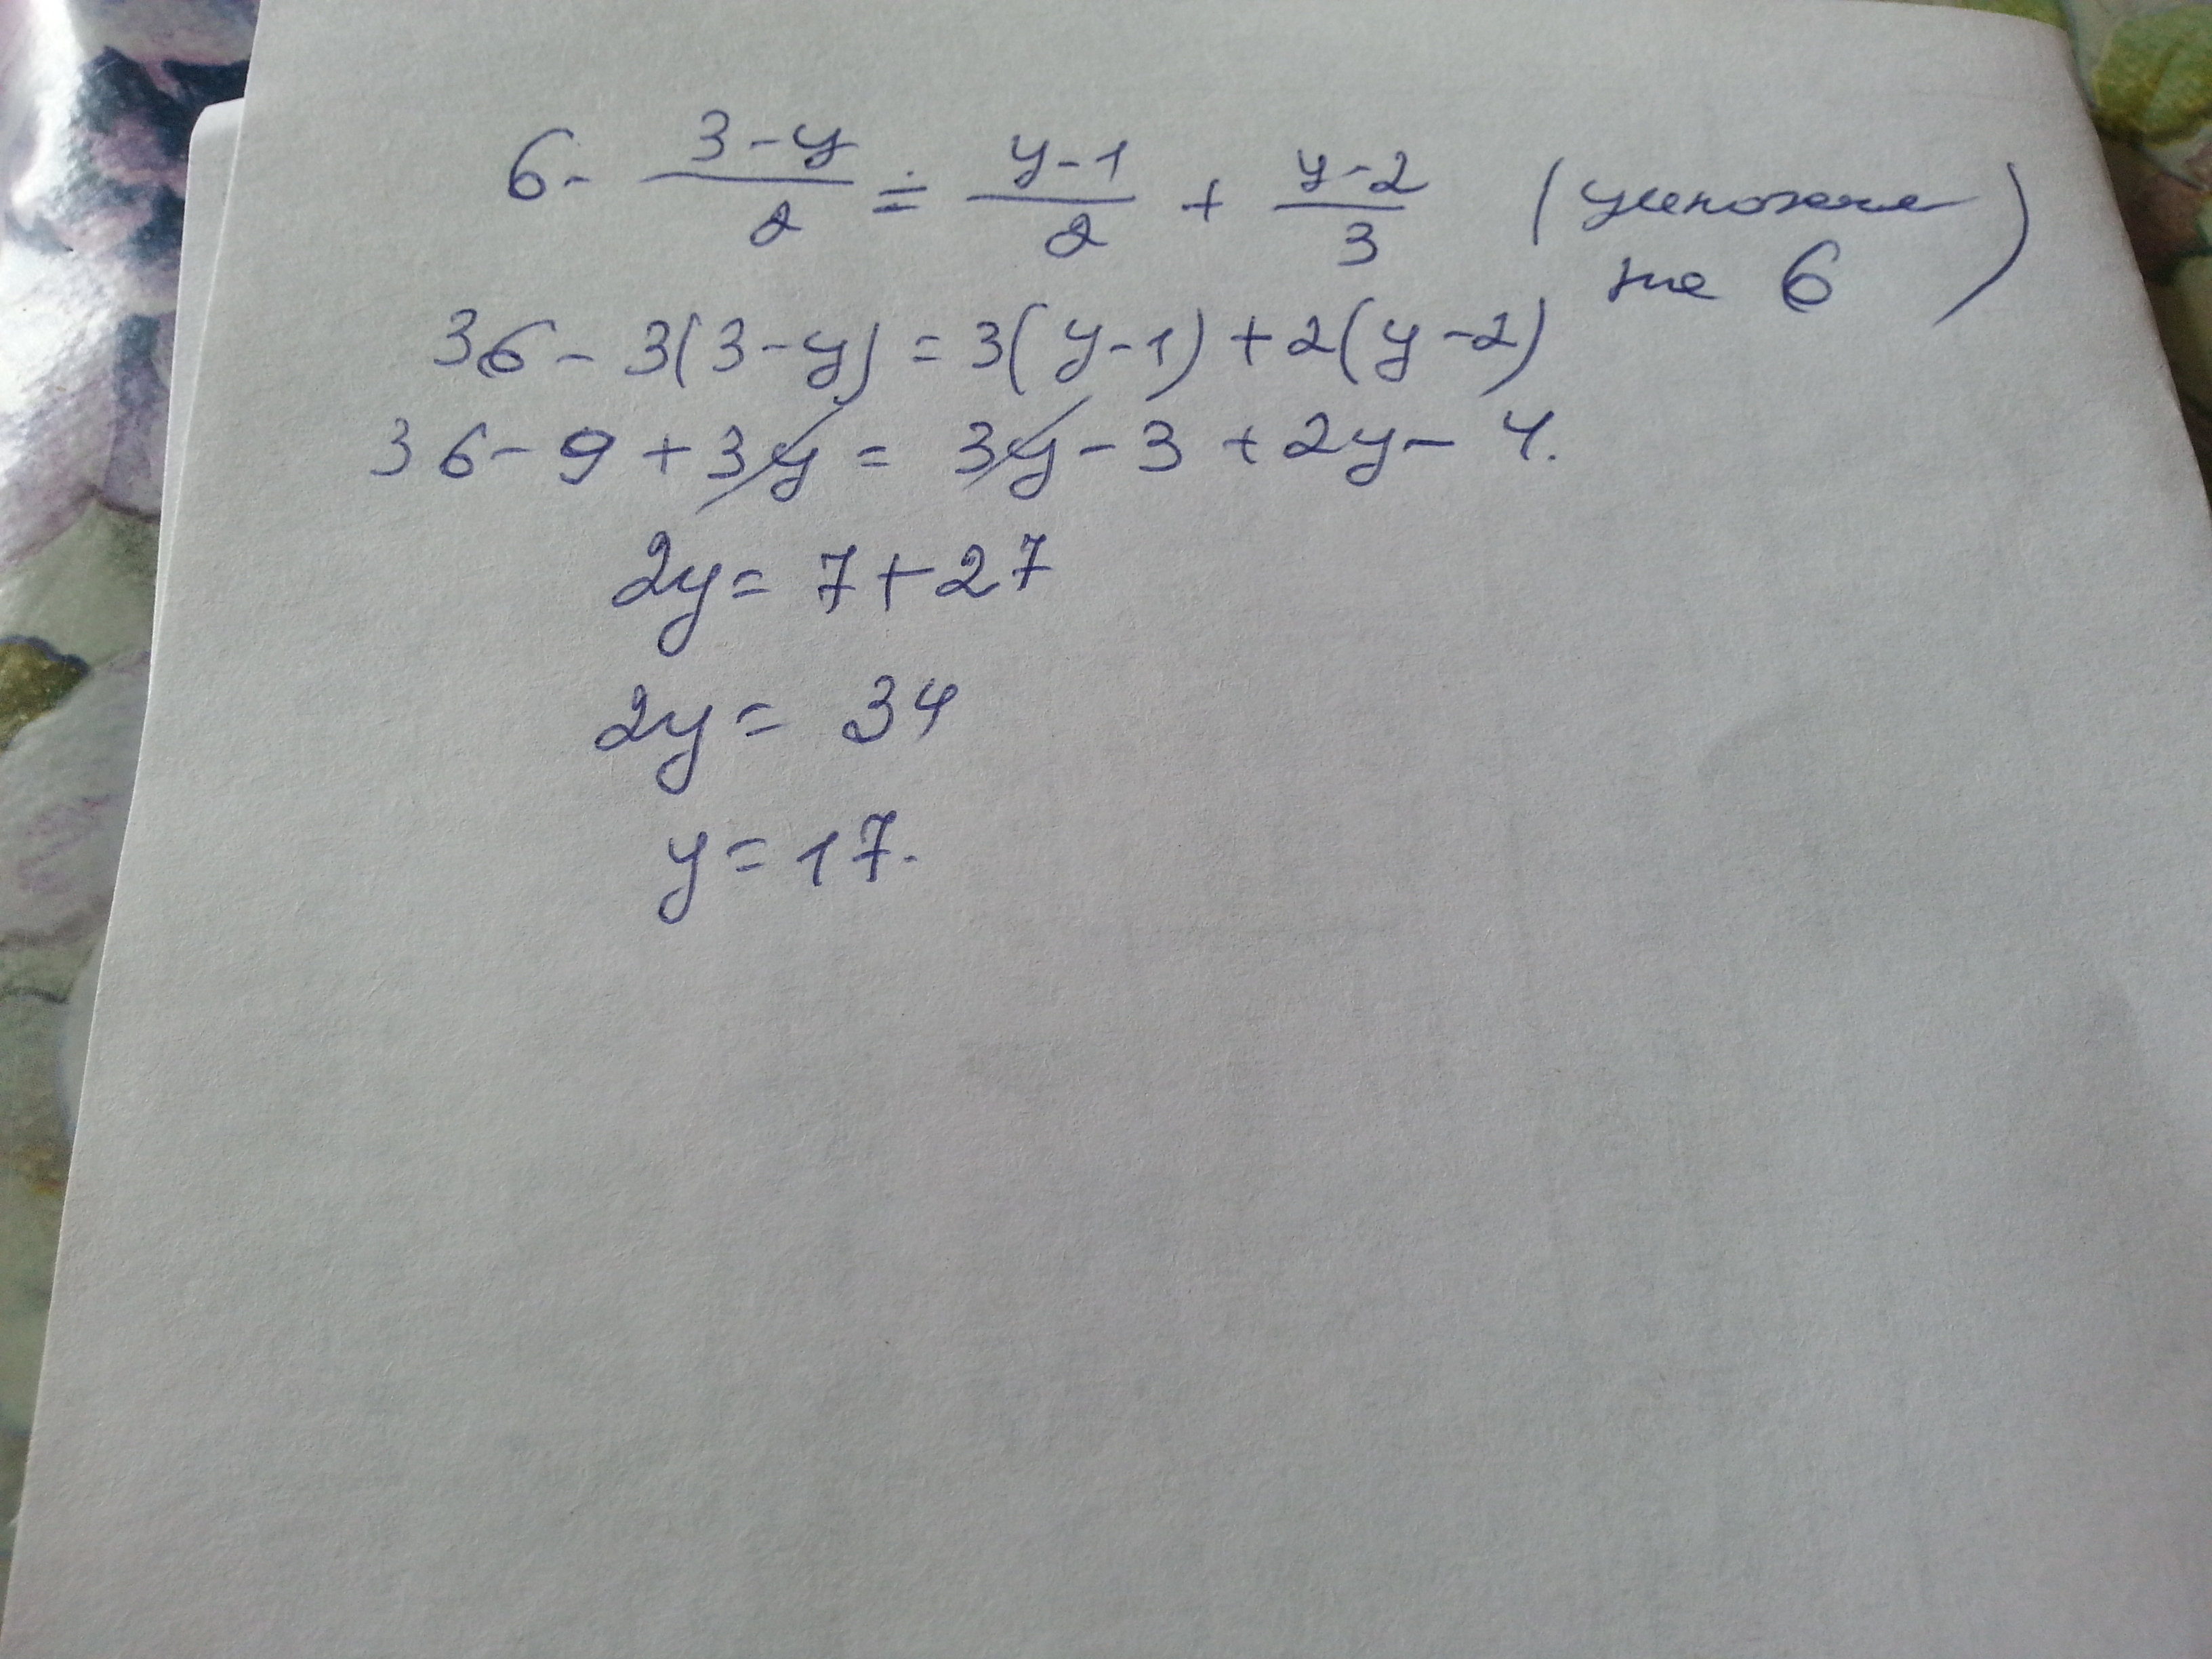 6 - (3-y)/2 = (y-1)/2 + (y-2)/3 (умножим
на 6)
36 - 3(3-y) = 3(y-1) + 2(y-2)
36 - 9 + 3y = 3y - 3 + 2y - 4.
2y = 7 + 27
2y = 34
y = 17.